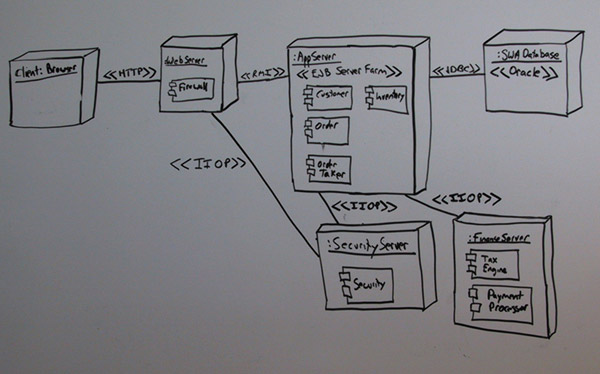 Client: Browser
<<HTTP>>
:WebServer
Firewall
<<RMI>>
:AppServer
<<EJB Server Farm>>
Customer
Inventory
Order
Order
Taker
<<JDBC>>
:SWA Database
<<Oracle>>
<<IIOP>>
<<IIOP>>
<<IIOP>>
:SecurityServer
Security
:FinanceServer
Tax
Engine
Payment
Processor